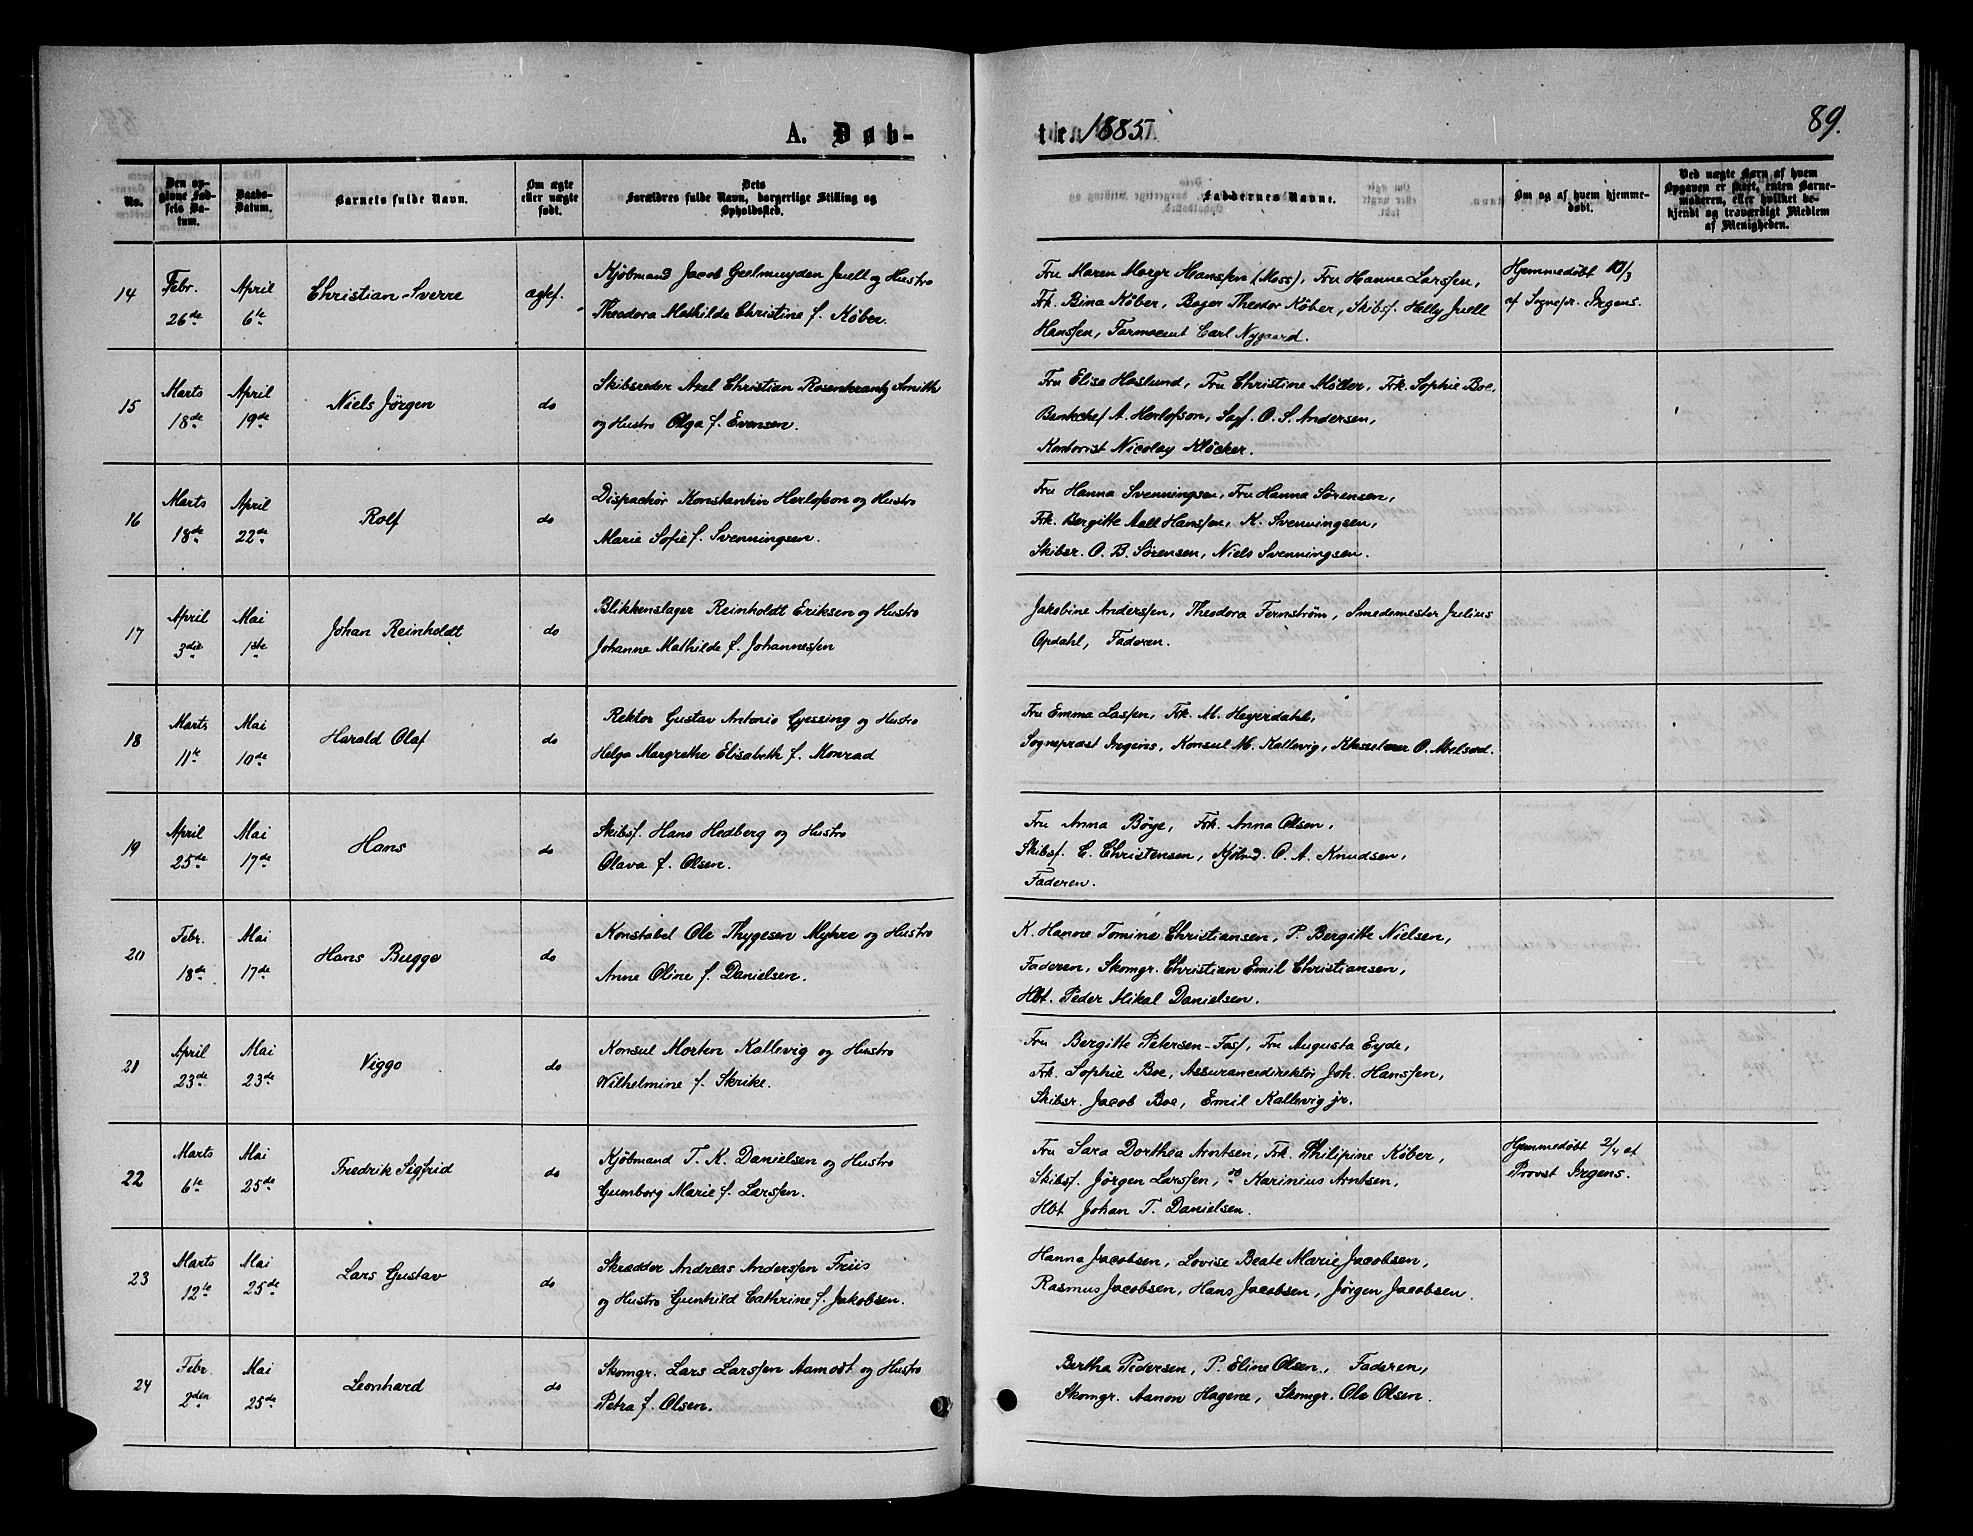 89.
A. Døb-
te. 1885.
No.
Den opgivne Fødsels Datum.
Daabs-Datum.
Barnets fulde Navn.
Om ægte eller uægte født.
Dets Forældres fulde Navn, borgerlige Stilling og Opholdssted.
Faddernes Navne.
Om og af hvem hjemmedøbt.
Ved uægte Børn af hvem Opgaven er skeet, enten Barnemoderen, eller hvilket bekjendt og troværdigt Medlem af Menigheden.
14
Febr. 26de
April 6te
Christian Sverre
ægtef.
Kjøbmand Jacob Geelmuyden Juell og Hustro
Theodora Mathilde Christine f. Køber.
Fru Maren Margr Hansſen (Moss), Fru Hanna Larsſen,
Frk. Bina Køber, Bager Theodor Køber, Skibsf. Helly Juell
Hansſen, Farmaceut Carl Nygaard.
Hjemmedøbt 10/3
af Sognepr. Irgens.
15
Marts 18de
April 19de
Niels Jörgen
do
Skibsreder Axel Christian Rosenkrantz Smith
og Hustro Olga f. Evensen.
Fru Elise Haslund, Fru Christine Möller, Frk. Sophie Boe,
Bankchef A. Herlofson, Sagf. O. S. Andersen,
Kontorist Nicolay Klöcker.
16
Marts 18de
April 22de
Rolf
do
Dispachør Konstantin Herlofson og Hustro
Marie Sofie f. Svenningsen.
Fru Hanna Svenningsen, Fru Hanna Sørensen,
Frk. Bergitte Aall Hansſen, K. Svenningsen,
Skibsr. O. B. Sörensen, Niels Svenningsen.
17
April 3die
Mai 1ste
Johan Reinholdt
do
Blikkenslager Reinholdt Eriksen og Hustro
Johanne Mathilde f. Johannesſen
Jakobine Andersſen, Theodora Fernström, Smedemester Julius
Opdahl, Faderen.
18
Marts 11te
Mai 10de
Harald Olaf
do
Rektor Gustav Antonio Gjessing og Hustro
Helga Margrethe Elisabeth f. Monrad
Fru Emma Lasſen, Frk. M. Heyerdahl,
Sogneprest Irgens, Konsul M. Kallevig, O. Abelsed.
19
April 25de
Mai 17de
Hans
do
Skibsf. Hans Hedberg og Hustro
Olava f. Olsen.
Fru Anna Böye, Frk. Anna Olsen,
Skibsf. C. Christensen, Kjöbmd. O. A. Knudsen,
Faderen.
20
Febr. 18de
Mai 17de
Hans Bugge
do
Konstabel Ole Thygesen Myhre og Hustro
Anne Oline f. Danielsen.
K. Hanne Tomine Christiansen, P. Bergitte Nielsen,
Faderen, Skomgr. Christian Emil Christiansen,
Hbt. Peder Mikal Danielsen.
21
April 23de
Mai 23de
Viggo
do
Konsul Morten Kallevig og Hustro
Wilhelmine f. Skrike.
Fru Bergitte Petersen-Fasſ, Fru Augusta Eyde,
Frk. Sophie Boe, Assurancedirektör Joh. Hansſen,
Skibsr. Jacob Boe, Emil Kallevig jr.
22
Marts 6te
Mai 25de
Fredrik Sigfrid
do
Kjöbmand T. K. Danielsen og Hustro
Gumborg Marie f. Larsſen.
Fru Sara Dorthea Arntsen, Frk. Philipine Köber,
Skibsf. Jörgen Larsſen, do Karinius Arntsen,
Hbt Johan T. Danielsen.
Hjemmedöbt 2/4 af
Provst Irgens.
23
Marts 12te
Mai 25de
Lars Gustav
do
Skrædder Andreas Andersſen Friis
og Hustro Gunhild Cathrine f. Jakobsen.
Hanna Jacobsen, Lovise Beate Marie Jacobsen,
Rasmus Jacobsen, Hans Jacobsen, Jörgen Jacobsen.
24
Febr. 2den
Mai 25de
Leonhard
do
Skomgr. Lars Larsſen Aamodt og Hustro
Petra f. Olsen.
Bertha Pedersen, P. Eline Olsen, Faderen,
Skomgr. Aanon Hagene, Skomgr. Ole Olsen.